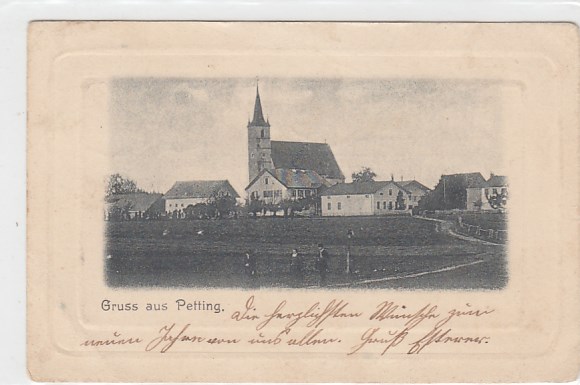 Gruss aus Petting. Die herzlichsten Wünsche zum
neuen Jahre von uns allen. Gruß Esterer.